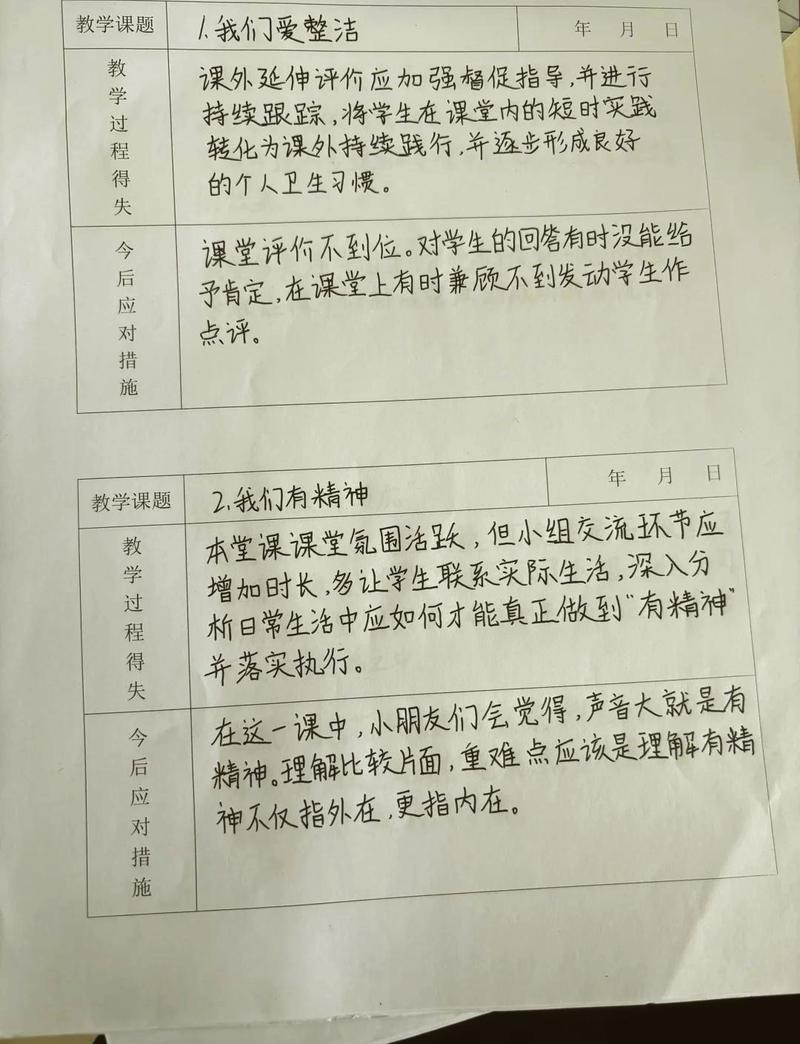 教学课题 1.我们爱整洁 年 月 日
教学过程得失
课外延伸评价应加强督促指导,并进行
持续跟踪,将学生在课堂内的短时实践
转化为课外持续践行,并逐步形成良好
的个人卫生习惯。
今后应对措施
课堂评价不到位。对学生的回答有时没能给
予肯定,在课堂上有时兼顾不到发动学生作
点评。
教学课题 2.我们有精神 年 月 日
教学过程得失
本堂课课堂氛围活跃,但小组交流环节应
增加时长,多让学生联系实际生活,深入分
析日常生活中应如何才能真正做到“有精神”
并落实执行。
今后应对措施
在这一课中,小朋友们会觉得,声音大就是有
精神。理解比较片面,重难点应该是理解有精
神不仅指外在,更指内在。